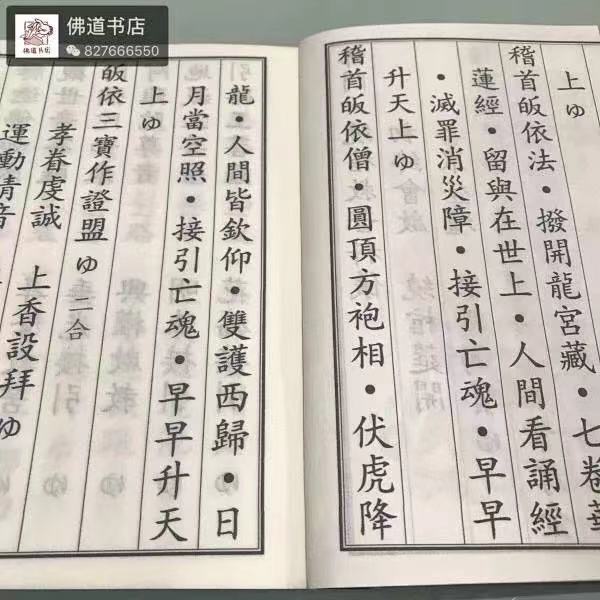 佛道书店
827666550
佛道书店
上ゆ
稽首皈依法•撥開龍宮藏•七卷華
蓮經•留與在世上•人間看誦經
•滅罪消災障•接引亡魂•早早
升天上ゆ
稽首皈依僧•圓頂方袍相•伏虎降
龍•人間皆欽仰•雙護西歸•日
月當空照•接引亡魂•早早升天
上ゆ
皈依三寶作證盟ゆ二合
孝眷虔誠 上香設拜ゆ